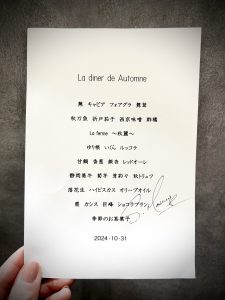 La diner de Automne
無 キャビア フォアグラ 舞茸
秋刀魚 折戸茄子 西京味噌 酢橘
La ferme ～秋麗～
ゆり根 いくら ルッコラ
甘鯛 香茸 銀杏 レッドオーレ
静岡黒牛 菊芋 芽彩々 秋トリュフ
落花生 ハイビスカス オリーブオイル
栗 カシス 巨峰 ショコラブラン
季節のお茶菓子
2024・10・31